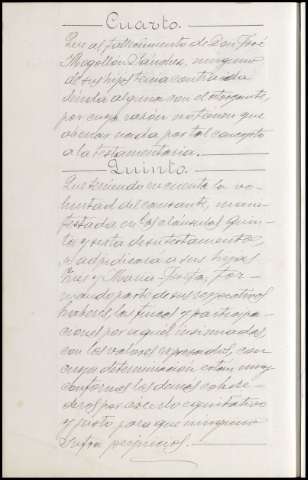 Cuarto.
Que al fallecimiento de Don José
Mogollon Paredes, ninguno
de sus hijos tenia contraida
deuda alguna con el otorgante,
por cuya razon no tienen que
abonar nada por tal concepto
a la testamentaria.
Quinto.
Que teniendo en cuenta la vo-
luntad del causante, mani-
festada en las cláusulas quin-
ta y sexta de su testamento,
se adjudicará a sus hijas
y Maria Josefa, for-
mando parte de sus respectivos
haberes, las fincas y participa-
ciones por aquel insinuadas
con los valores expresados, con
cuya determinacion estan muy
conformes los demas cohere-
deros por creerlo equitativo
y justo para que ninguno
sufra perjuicios.